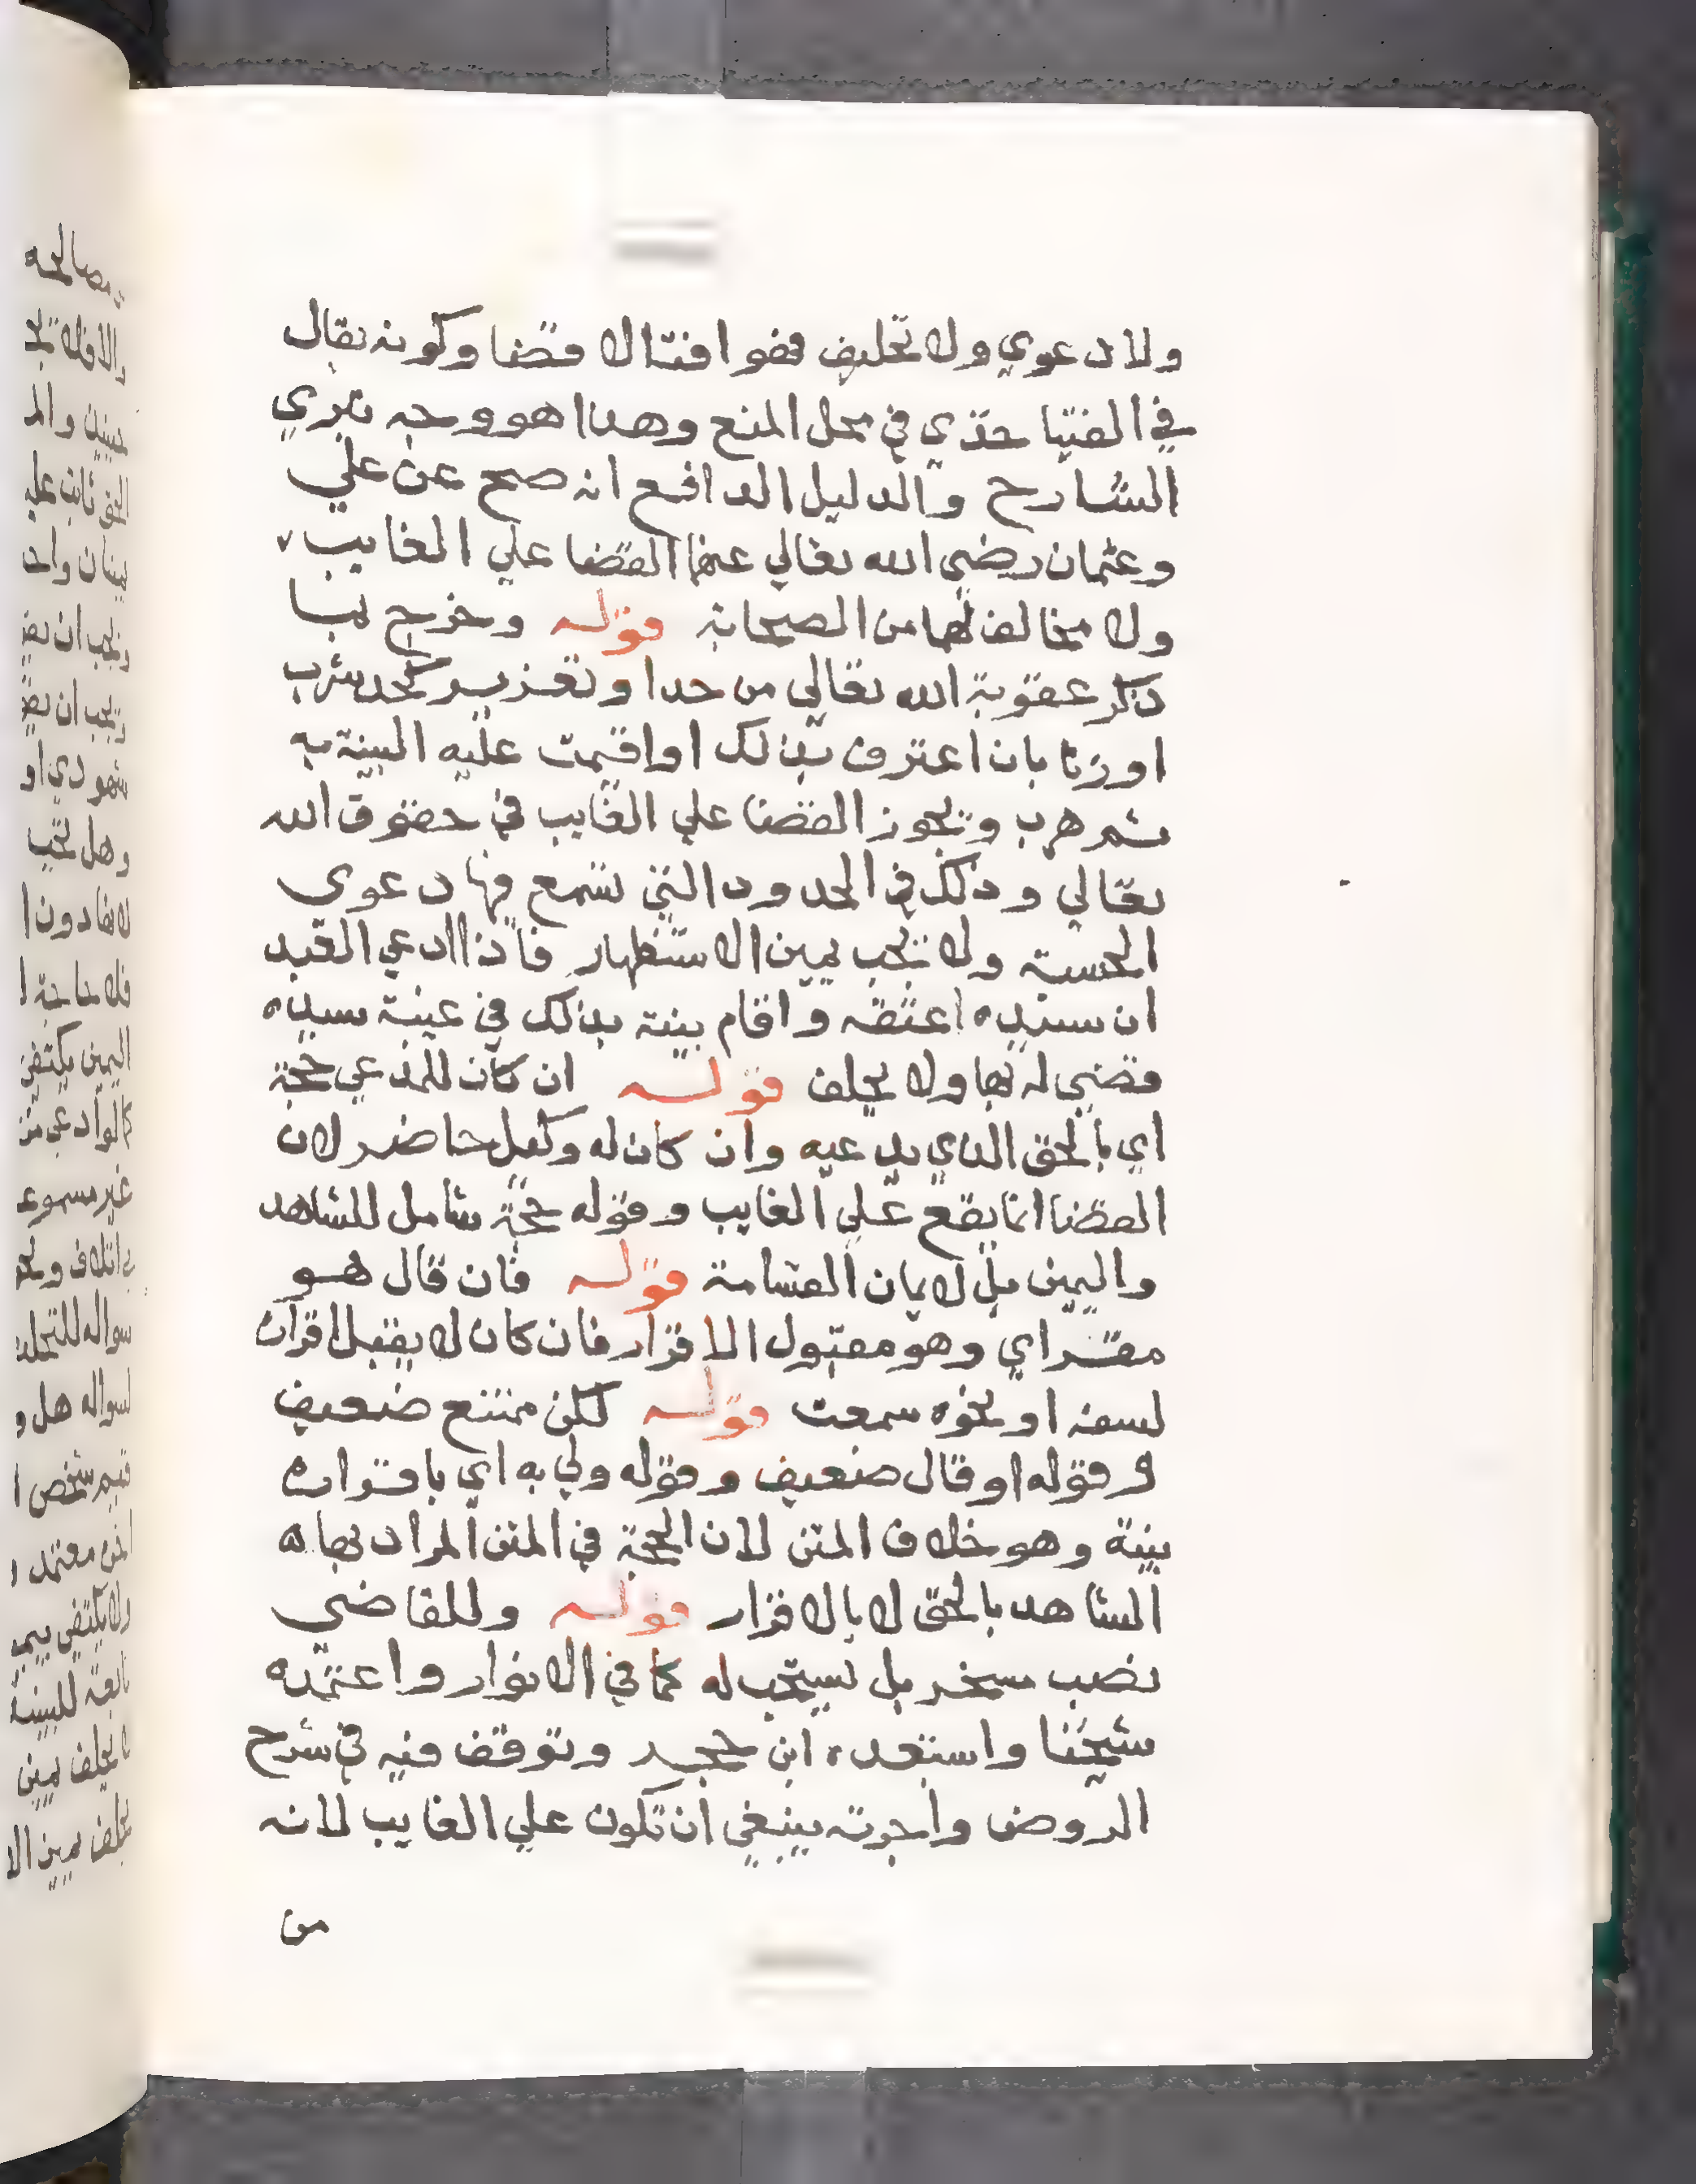 ولا دعوي ولا تحليف فهو افتا لا قضا وكونه يقال
في الفتيا حتي في محل المنع وهذا هو وجه تبري
الشارح والدليل الدافع انه صح عن علي
وعثمان رضي الله تعالي عنهما القضا علي الغايب
ولا مخالف لهما من الصحابة قوله وخرج بما
ذكر عقوبة الله تعالي من حد او تعزير كحد شرب
او زنا بان اعترف بذلك او اقيمت عليه البينة به
ثم هرب ويجوز القضا علي الغايب في حقوق الله
تعالي وذلك في الحدود التي تسمع فيها دعوي
الحسبة ولا تجب يمين الاستظهار فاذا ادعي العبد
ان سيده اعتقه واقام بينة بذلك في غيبة سيده
قضي له بها ولا يحلف قوله ان كان للمدعي حجة
اي بالحق الذي يدعيه وان كان له وكيل حاضر لان
القضا انما يقع علي الغايب وقوله حجة شامل للشاهد
واليمين بل لايمان القسامة قوله فان قال هو
مقر اي وهو مقبول الاقرار فان كان لا يقبل اقراره
لسفه او نحوه سمعت قوله لكن ممتنع ضعيف
وقوله او قال ضعيف وقوله ولي به اي باقراره
بينة وهو خلاف المتن لان الحجة في المتن المراد بها ه
الشاهد بالحق لا بالاقرار قوله وللقاضي
نصب مسخر بل يستحب له كما في الانوار واعتمده
شيخنا واستبعده ابن حجر وتوقف فيه في شرح
الروض واجرته ينبغي ان تكون علي الغايب لانه
من